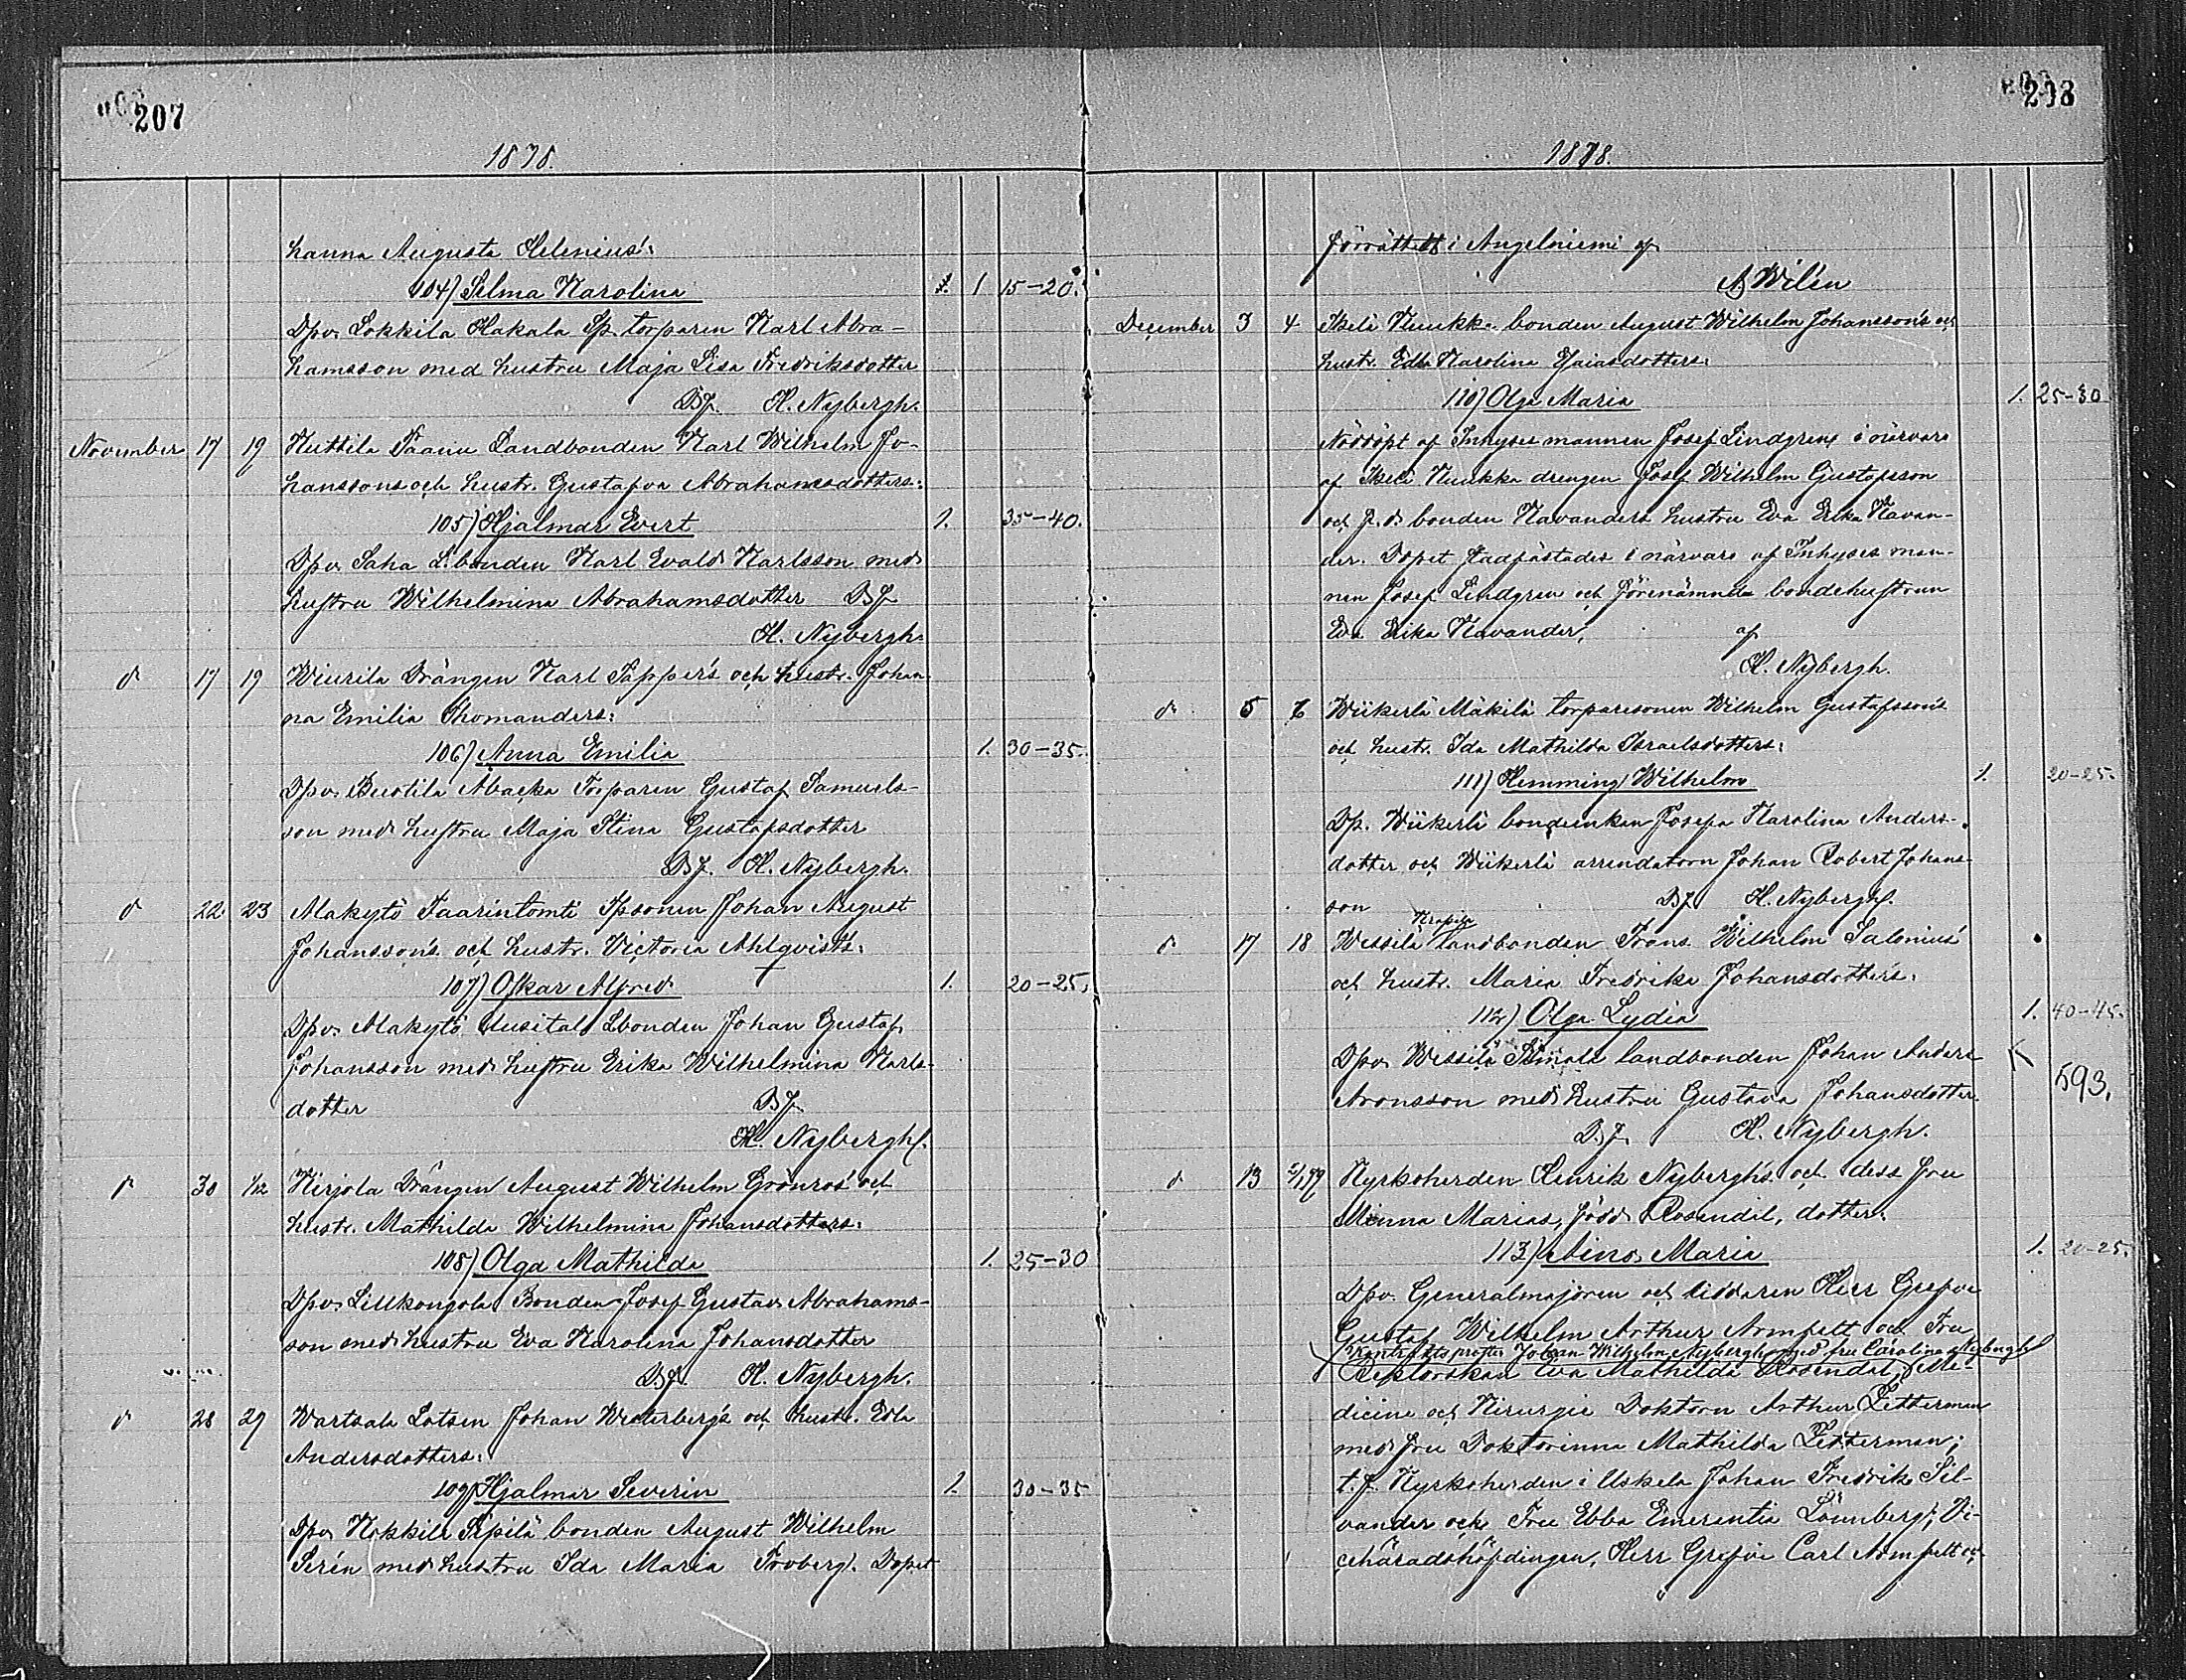 207
1878.
hanna Augusta Helenius':
104) Selma Karolina 1 15-20.
Dpv. Lokkila Hakala Sp. torparen Karl Abra-
hamsson med hustru Maja Lisa Fredriksdotter
Bf. H. Nybergh.
November 17 19 Kuttila Paanu Landbonden Karl Wilhelm Jo-
hanssons och hustr. Gustafva Abrahamsdotters:
105) Hjalmar Evert 1. 35-40.
Dpv. Saha L.bonden Karl Evald Karlsson med
hustru Wilhelmina Abrahamsdotter Bf
H. Nybergh.
d 17 19 Wiurila Drängen Karl Sappers och hustr. Johan-
na Emilia Thomanders:
106) Anna Emilia 1. 30-35.
Dpv. Buotila Abacka Torparen Gustaf Samuels-
son med hustru Maja Stina Gustafsdotter
Bf. H. Nybergh.
d 22 23 Alakytö Taarintomti Spsonen Johan August
Johanssons och hustr. Victoria Ahlqvists:
107) Oskar Alfred 1. 20-25.
Dpv. Alakytö Uusitalo Lbonden Johan Gustaf
Johansson med hustru Erika Wilhelmina Karls-
dotter Bf.
H. Nybergh.
d 30 1/12 Kirjola Drängen August Wilhelm Grönroos' och
hustr. Mathilda Wilhelmina Johansdotters:
108) Olga Mathilda 1. 25-30
Dpv. Lillkongola Bonden Josef Gustav Abrahams-
son med hustru Eva Karolina Johansdotter
Bf. H. Nybergh.
d 28 29 Wartsala Lotsen Johan Westerbergs och hustr. Eda
Andersdotters:
109) Hjalmar Severin 1. 30-35
Dpv. Kokkila Sipilä bonden August Wilhelm
Serén med hustru Ida Maria Froberg. Dopet
208
1878.
förrättadt i Angelniemi af
A. Wilén
December 3 4 Isklä Kuukka bonden August Wilhelm Johanssons och
hustr. Edla Karolina Esaiasdotters:
110) Olga Maria 1. 25-30
Nöddöpt af Inhyses mannen Josef Lindgren i närvaro
af Kuukka drengen Josef Wilhelm Gustafsson
och f.d. bonden Kavanders hustru Eva Erika Kavan-
der. Dopet stadfästades i närvaro af Inhyses man-
nen Josef Lindgren och förenämnda bondehustrun
Eva Erika Kavander, af
H. Nybergh.
d 5 6 Wiikerlä Mäkilä torparesonen Wilhelm Gustafssons
och hustr. Ida Mathilda Israelsdotters:
111) Hemming Wilhelm 1. 20-25.
Dp. Wiikerlä bondeenkan Josefa Karolina Anders-
dotter och Wiikerlä arrendatorn Johan Robert Johans-
son Bf. H. Nybergh.
Krapila
d 17 18 Wessilä landbonden Frans Wilhelm Salonius'
och hustr. Maria Fredrika Johansdotters:
112) Olga Lydia 1. 40-45.
Dpv. Wessilä landbonden Johan Anders
Aronsson med hustru Gustava Johansdotter. 593.
Bf. H. Nybergh.
d 13 2/1 79 Kyrkoherden Henrik Nyberghs och dess fru
Minna Marias, född Rosendal, dotter:
113) Aino Maria 1. 20-25.
Dpv. Generalmajoren och riddaren Herr Grefve
Gustaf Wilhelm Arthur Armfelt och Fru
Kontraktsprosten Johan Wilhelm Nybergh med fru Carolina Nybergh
Rektorskan Eva Mathilda Rosendal; Me-
dicine och Kirurgie Doktorn Arthur Zitterman
med fru Doktorinna Mathilda Zitterman;
t.f. Kyrkoherden i Uskela Johan Fredrik Sil-
vander och Fru Ebba Emerentia Lönnberg; Vi-
cehäradshöfdingen, Herr Grefve Carl Armfelt och